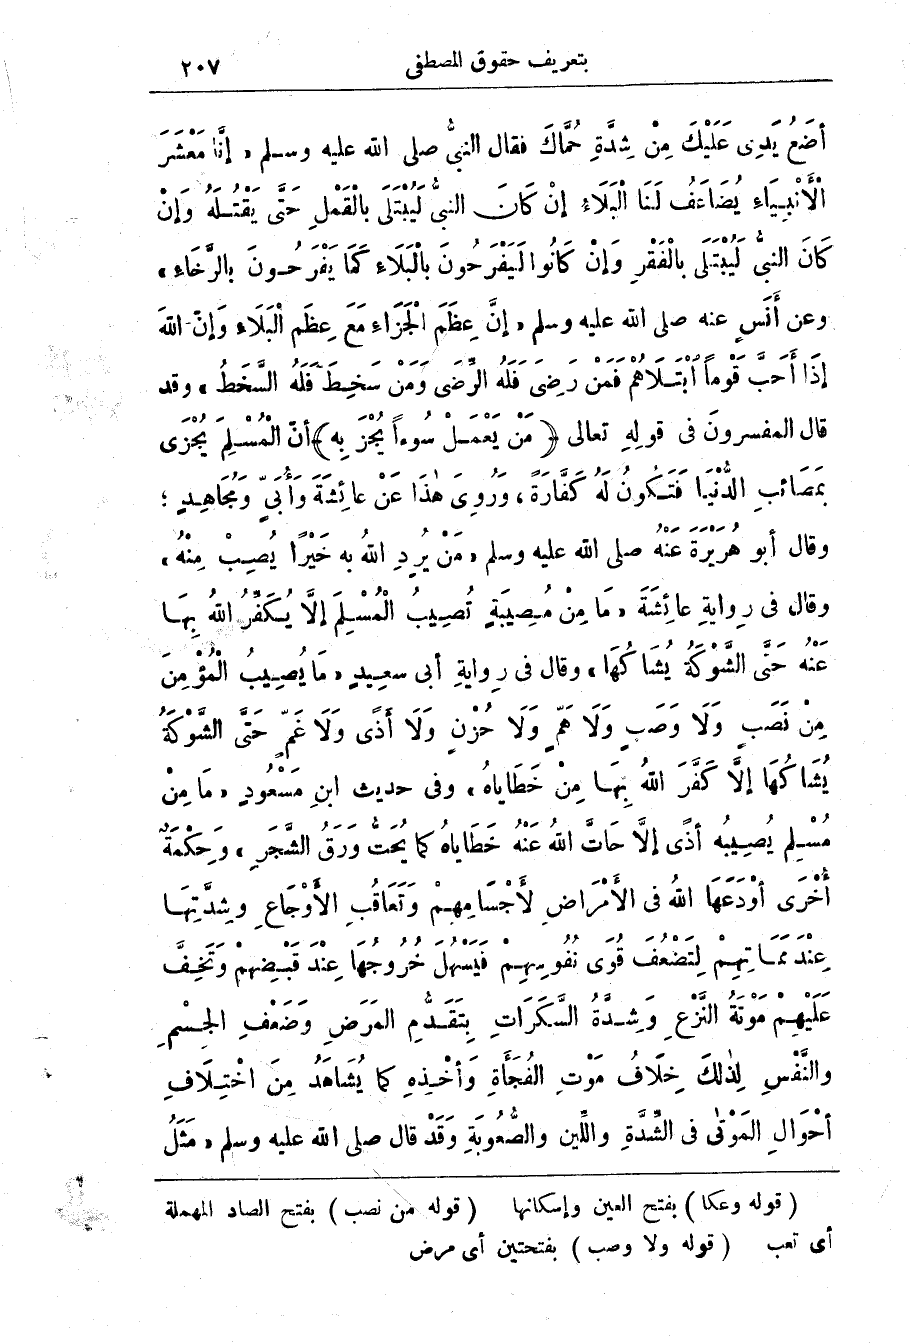 بتعريف حقوق المصطفى ٢٠٧
أَضَعُ يَدِى عَلَيْكَ مِنْ شِدَّةِ حُمَّاكَ فقال النبىُّ صلى الله عليه وسلم « إنَّا مَعْشَرَ
الْأَنْبِيَاءِ يُضَاعَفُ لَنَا الْبَلَاءُ إنْ كَانَ النبىُّ لَيُبْتَلَى بِالْقَمْلِ حَتَّى يَقْتُلَهُ وَإنْ
كَانَ النبىُّ لَيُبْتَلَى بِالْفَقْرِ وَإنْ كَانُوا لَيَفْرَحُونَ بِالْبَلَاءِ كَمَا يَفْرَحُونَ بالرَّخَاءِ »
وعن أَنَسٍ عنه صلى الله عليه وسلم « إنَّ عِظَمَ الْجَزَاءِ مَعَ عِظَمِ الْبَلَاءِ وَإنّ اللهَ
إذَا أَحَبَّ قَوْماً ابْتَلَاهُمْ فَمَنْ رَضِىَ فَلَهُ الرِّضَى وَمَنْ سَخِطَ فَلَهُ السَّخَطُ » وقد
قال المفسرونَ فى قولِهِ تعالى ﴿ مَنْ يَعْمَلْ سُوءاً يُجْزَ بِهِ ﴾ أنّ الْمُسْلِمَ يُجْزَى
بِمَصَائِبِ الدُّنْيَا فَتَكُونُ لَهُ كَفَّارَةً ، وَرُوِىَ هٰذَا عَنْ عائِشَةَ وَأُبَىٍّ وَمُجَاهِدٍ ؛
وقال أبو هُرَيْرَةَ عَنْهُ صلى الله عليه وسلم « مَنْ يُرِدِ اللهُ به خَيْرًا يُصِبْ مِنْهُ »
وقال فى رِوايةِ عائِشَةَ « مَا مِنْ مُصِيبَةٍ تُصِيبُ الْمُسْلِمَ إلَّا يُكَفِّرُ اللهُ بِهَا
عَنْهُ حَتَّى الشَّوْكَةُ يُشَاكُهَا » وقال فى رِوايةِ أبى سعِيدٍ « مَا يُصِيبُ الْمُؤْمِنَ
مِنْ نَصَبٍ وَلَا وَصَبٍ وَلَا هَمٍّ وَلَا حُزْنٍ وَلَا أَذًى وَلَا غَمٍّ حَتَّى الشَّوْكَةُ
يُشَاكُهَا إلَّا كَفَّرَ اللهُ بِهَا مِنْ خَطَايَاهُ » وفى حديث ابنِ مَسْعُودٍ « مَا مِنْ
مُسْلِمٍ يُصِيبُه أَذًى إلَّا حَاتَّ اللهُ عَنْهُ خَطَاياهُ كما يُحَتُّ وَرَقُ الشَّجَرِ » وَحِكْمَةٌ
أُخْرَى أَوْدَعَهَا اللهُ فى الأَمْرَاضِ لأَجْسَامِهِمْ وَتَعَاقُبِ الأَوْجَاعِ وشِدَّتِهَا
عِنْدَ مَمَاتِهِمْ لِتَضْعُفَ قُوَى نُفُوسِهِمْ فَيَسْهُلَ خُرُوجُهَا عِنْدَ قَبْضِهِمْ وَتَخِفَّ
عَلَيْهِمْ مَؤْنَةُ النَّزْعِ وَشِدَّةُ السَّكَرَاتِ بِتَقَدُّمِ المَرَضِ وَضَعْفِ الجِسْمِ
والنَّفْسِ لِذٰلِكَ خِلَافُ مَوْتِ الفُجَأَةِ وَأَخْذِهِ كما يُشَاهَدُ مِنَ اخْتِلَافِ
أَحْوَالِ المَوْتَى فى الشِّدَّةِ واللِّينِ والصُّعُوبَةِ وَقَدْ قال صلى الله عليه وسلم « مَثَلُ
( قوله وعكا ) بفتح العين وإسكانها ( قوله من نصب ) بفتح الصاد المهملة
أى تعب ( قوله ولا وصب ) بفتحتين أى مرض